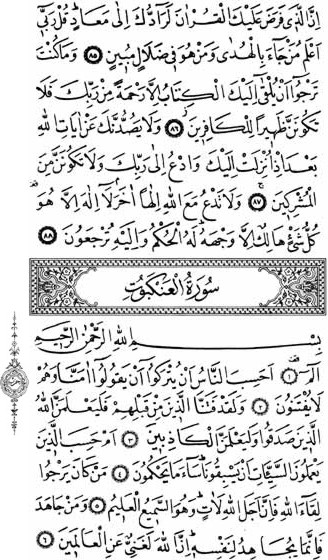 اِنَّ الَّذٖي فَرَضَ عَلَيْكَ الْقُرْاٰنَ لَرَٓادُّكَ اِلٰى مَعَادٍ قُلْ رَبّٖٓي
اَعْلَمُ مَنْ جَٓاءَ بِالْهُدٰى وَمَنْ هُوَ فٖي ضَلَالٍ مُبٖينٍ ٨٥ وَمَا كُنْتَ
تَرْجُٓوا اَنْ يُلْقٰٓى اِلَيْكَ الْكِتَابُ اِلَّا رَحْمَةً مِنْ رَبِّكَ فَلَا
تَكُونَنَّ ظَهٖيراً لِلْكَافِرٖينَ ٨٦ وَلَا يَصُدُّنَّكَ عَنْ اٰيَاتِ اللّٰهِ
بَعْدَ اِذْ اُنْزِلَتْ اِلَيْكَ وَادْعُ اِلٰى رَبِّكَ وَلَا تَكُونَنَّ مِنَ
الْمُشْرِكٖينَ ٨٧ وَلَا تَدْعُ مَعَ اللّٰهِ اِلٰهاً اٰخَرَ لَٓا اِلٰهَ اِلَّا هُوَ
كُلُّ شَيْءٍ هَالِكٌ اِلَّا وَجْهَهُ لَهُ الْحُكْمُ وَاِلَيْهِ تُرْجَعُونَ ٨٨
سُورَةُ الْعَنْكَبُوتِ
بِسْمِ اللّٰهِ الرَّحْمٰنِ الرَّحٖيمِ
الٓمٓ ١ اَحَسِبَ النَّاسُ اَنْ يُتْرَكُٓوا اَنْ يَقُولُٓوا اٰمَنَّا وَهُمْ
لَا يُفْتَنُونَ ٢ وَلَقَدْ فَتَنَّا الَّذٖينَ مِنْ قَبْلِهِمْ فَلَيَعْلَمَنَّ اللّٰهُ
الَّذٖينَ صَدَقُوا وَلَيَعْلَمَنَّ الْكَاذِبٖينَ ٣ اَمْ حَسِبَ الَّذٖينَ
يَعْمَلُونَ السَّيِّـَٔاتِ اَنْ يَسْبِقُونَا سَٓاءَ مَا يَحْكُمُونَ ٤ مَنْ كَانَ يَرْجُوا
لِقَٓاءَ اللّٰهِ فَاِنَّ اَجَلَ اللّٰهِ لَاٰتٍ وَهُوَ السَّمٖيعُ الْعَلٖيمُ ٥ وَمَنْ جَاهَدَ
فَاِنَّمَا يُجَاهِدُ لِنَفْسِهٖ اِنَّ اللّٰهَ لَغَنِيٌّ عَنِ الْعَالَمٖينَ ٦